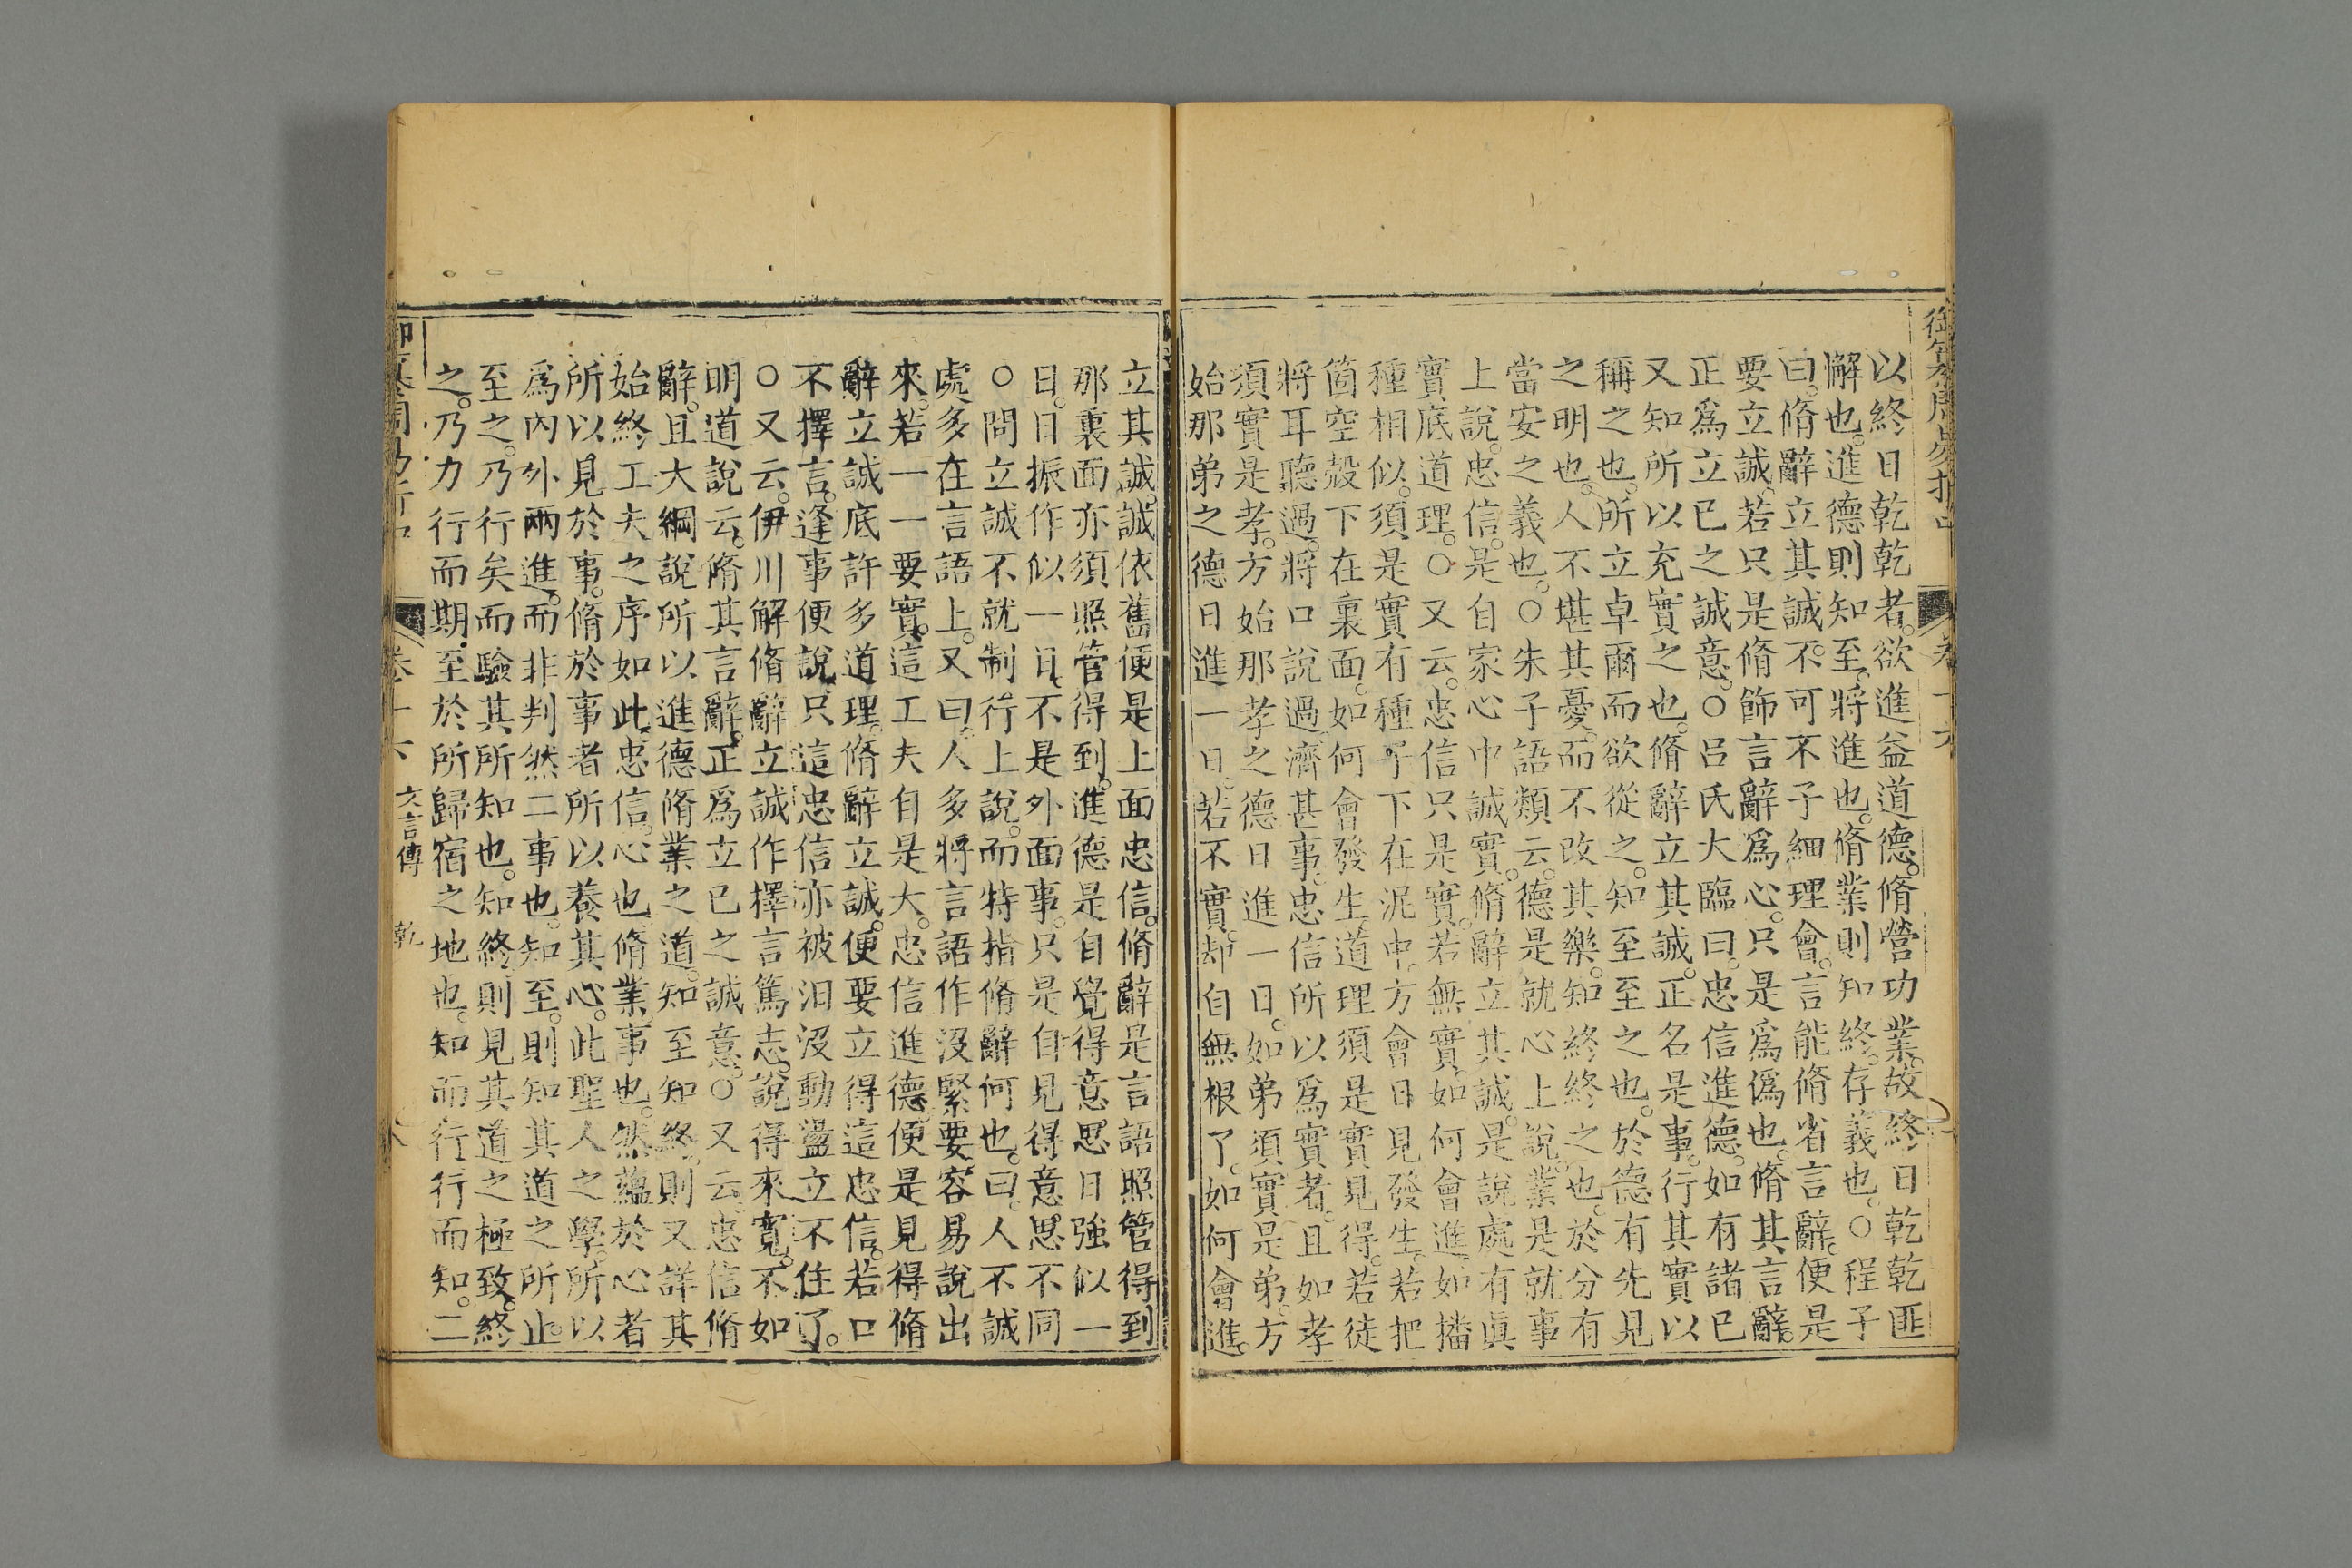 御纂周易折中
卷十六
以終日乾乾者。欲進益道德。脩營功業。故終日乾乾匪
懈也。進德則知至。將進也。脩業則知終。存義也。○程子
曰。脩辭立其誠。不可不子細理會。言能脩省言辭。便是
要立誠。若只是脩飾言辭爲心。只是爲僞也。脩其言辭。
正爲立己之誠意。○呂氏大臨曰。忠信進德。如有諸已
又知所以充實之也。脩辭立其誠。正名是事。行其實以
稱之也。所立卓爾而欲從之。知至至之也。於德有先見
之明也。人不堪其憂。而不改其樂。知終終之也。於分有
當安之義也。○朱子語類云。德是就心上說。業是就事
上說。忠信。是自家心中誠實。脩辭立其誠。是說處有眞
實底道理。○又云。忠信只是實。若無實。如何會進。如播
種相似。須是實有種子下在泥中。方會日見發生。若把
箇空殼下在裏面。如何會發生。道理須是實見得。若徒
將耳聽過。將口說過。濟甚事。忠信所以爲實者。且如孝
須實是孝。方始那孝之德日進一日。如弟須實是弟。方
始那弟之德日進一日。若不實。却自無根了。如何會進。
立其誠。誠依舊便是上面忠信。脩辭是言語照管得到
那裏面亦須照管得到。進德是自覺得意思日強似一
日。日振作似一日。不是外面事。只是自見得意思不同
○問立誠不就制行上說。而特指脩辭何也。曰。人不誠
處多在言語上。又曰。人多將言語作沒緊要容易說出
來。若一一要實。這工夫自是大。忠信進德。便是見得脩
辭立誠底許多道理。脩辭立誠。便要立得這忠信。若口
不擇言。逢事便說。只這忠信亦被汨沒動盪立不住了。
○又云。伊川解脩辭立誠作擇言篤志。說得來寬。不如
明道說云。脩其言辭。正爲立己之誠意。○又云。忠信脩
辭。且大綱說所以進德脩業之道。知至知終。則又詳其
始終工夫之序如此。忠信。心也。脩業。事也。然蘊於心者
所以見於事。脩於事者所以養其心。此聖人之學。所以
爲內外兩進。而非判然二事也。知至。則知其道之所止。
至之。乃行矣而驗其所知也。知終。則見其道之極致。終
之。乃力行而期至於所歸宿之地也。知而行行而知。二
卷十六
文言傳
乾